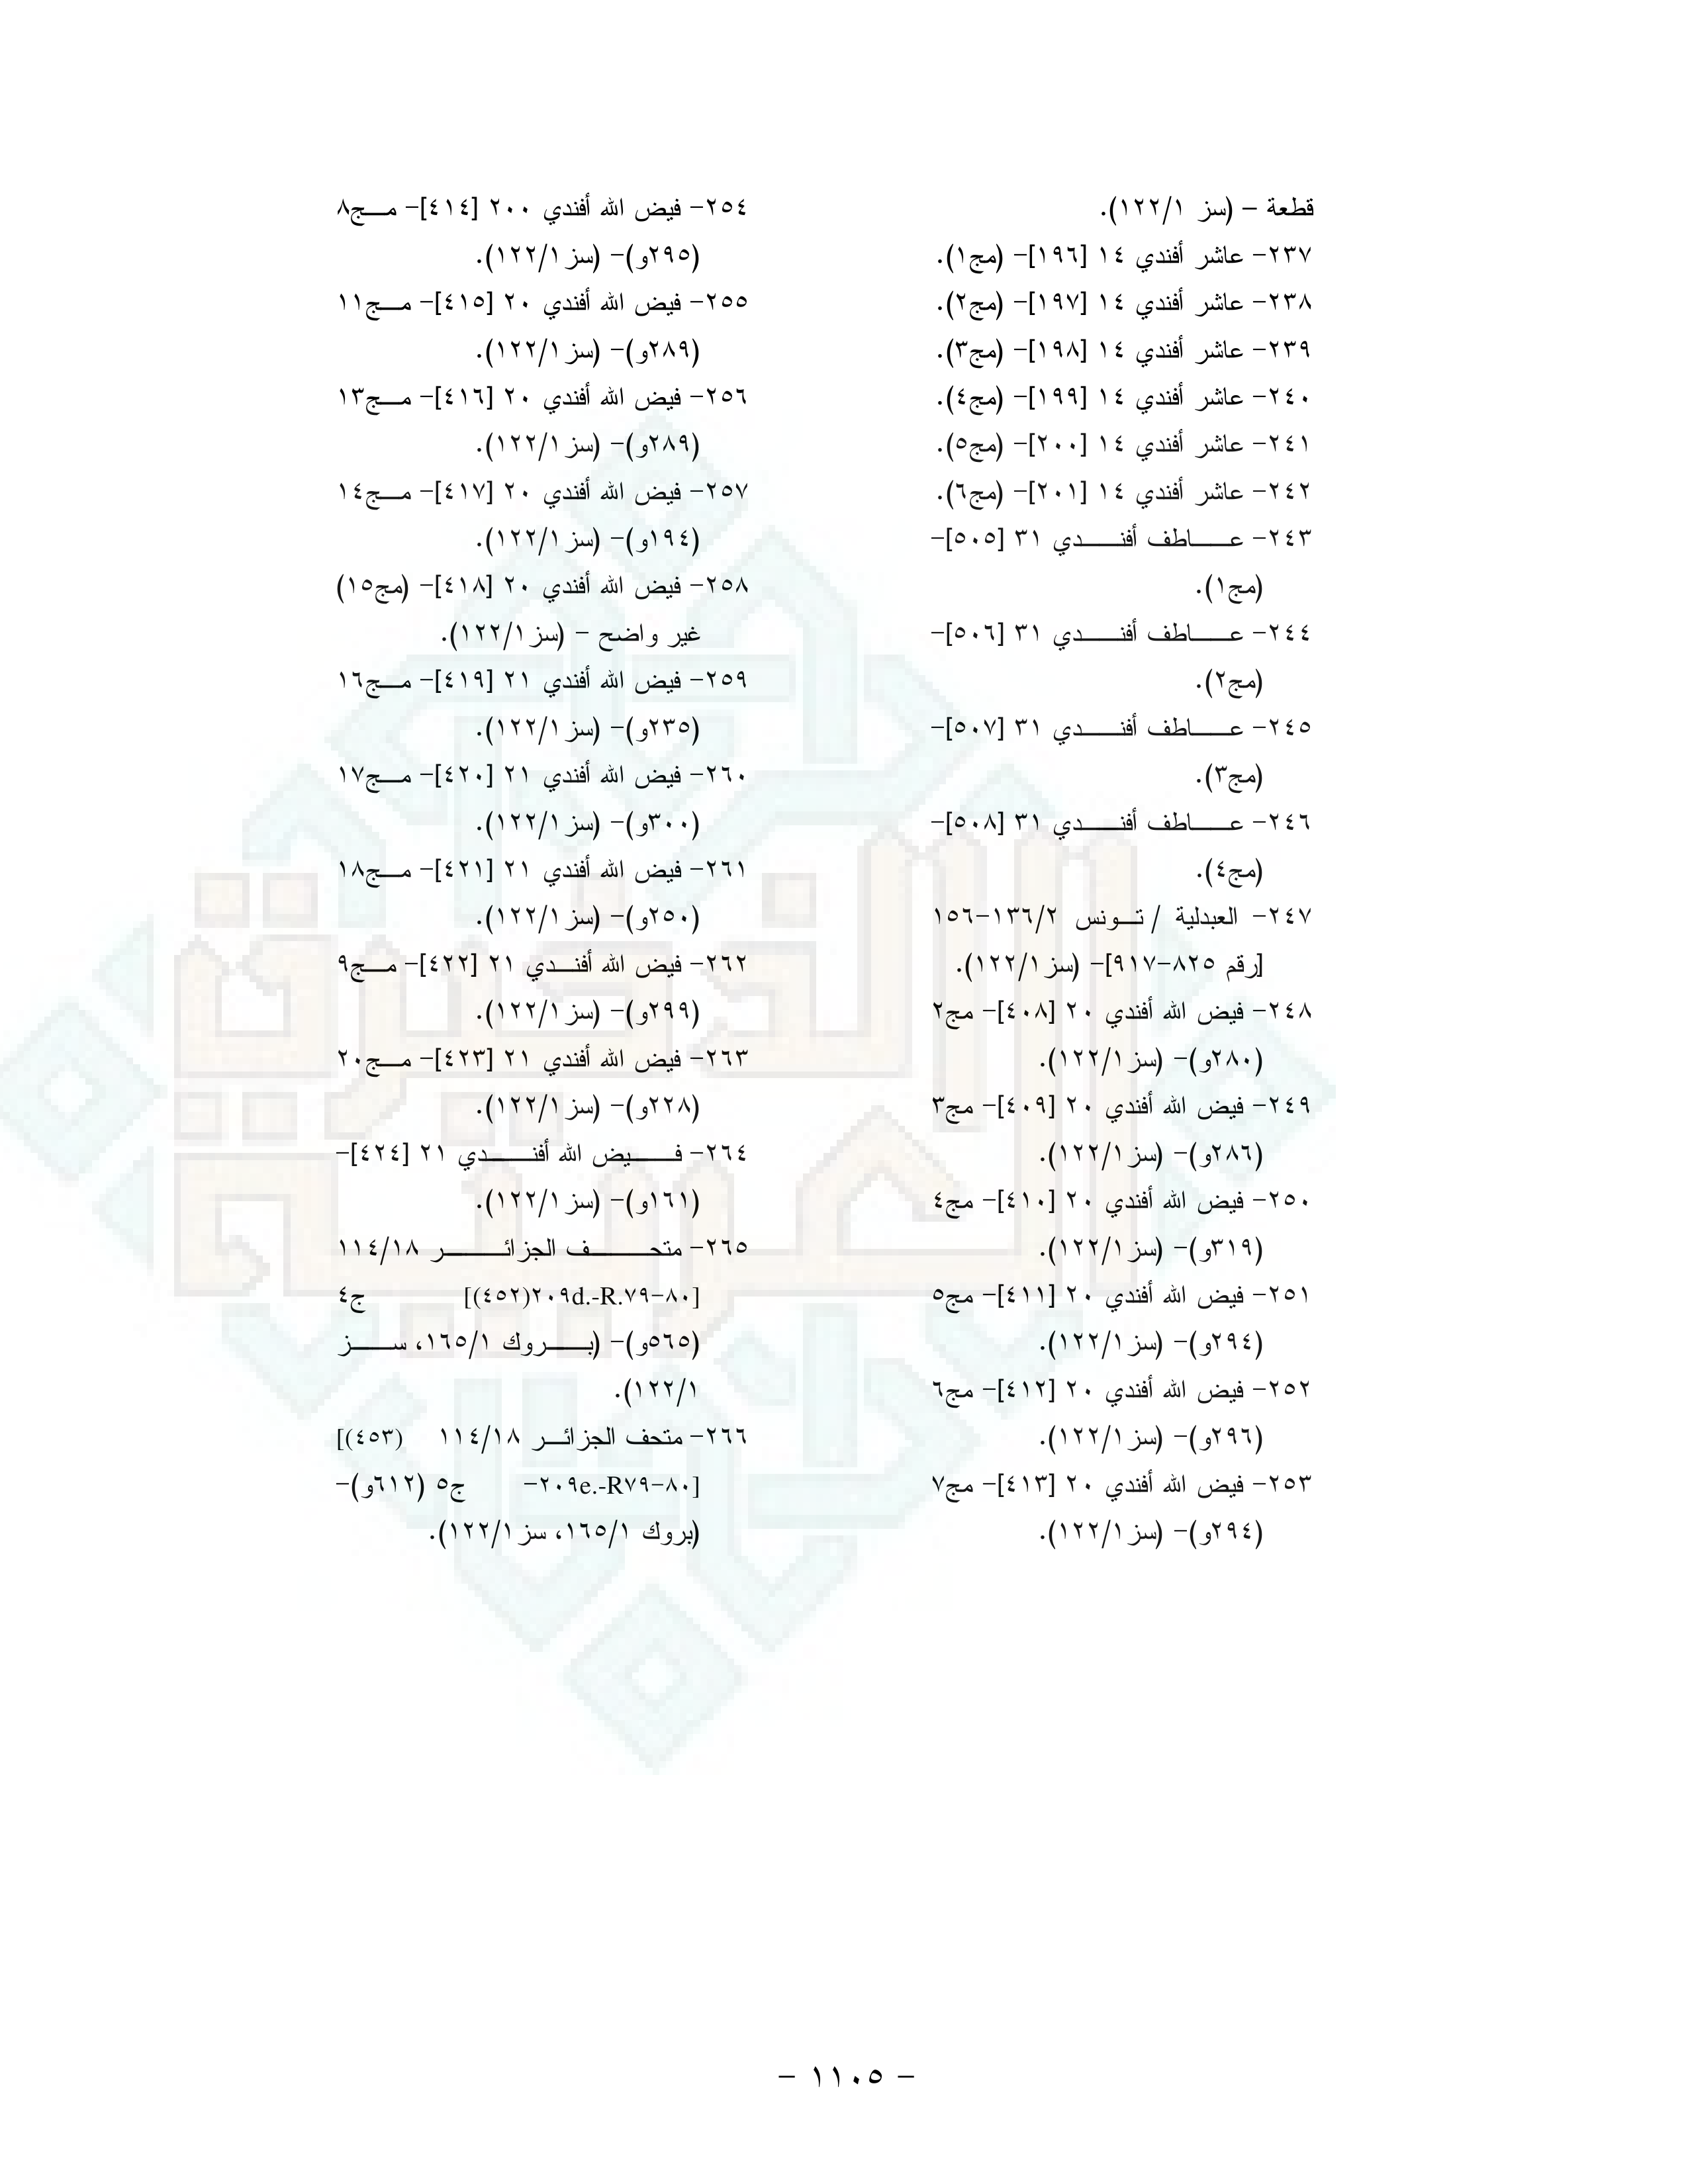 قطعة – (سز ١٢٢/١).
٢٣٧- عاشر أفندي ١٤ [١٩٦]- (مج١).
٢٣٨- عاشر أفندي ١٤ [١٩٧]- (مج٢).
٢٣٩- عاشر أفندي ١٤ [١٩٨]- (مج٣).
٢٤٠- عاشر أفندي ١٤ [١٩٩]- (مج٤).
٢٤١- عاشر أفندي ١٤ [٢٠٠]- (مج٥).
٢٤٢- عاشر أفندي ١٤ [٢٠١]- (مج٦).
٢٤٣- عاطف أفندي ٣١ [٥٠٥]-
(مج١).
٢٤٤- عاطف أفندي ٣١ [٥٠٦]-
(مج٢).
٢٤٥- عاطف أفندي ٣١ [٥٠٧]-
(مج٣).
٢٤٦- عاطف أفندي ٣١ [٥٠٨]-
(مج٤).
٢٤٧- العبدلية / تونس ١٣٦/٢-١٥٦
[رقم ٨٢٥-٩١٧]- (سز١٢٢/١).
٢٤٨- فيض الله أفندي ٢٠ [٤٠٨]- مج٢
(٢٨٠و)- (سز١٢٢/١).
٢٤٩- فيض الله أفندي ٢٠ [٤٠٩]- مج٣
(٢٨٦و)- (سز١٢٢/١).
٢٥٠- فيض الله أفندي ٢٠ [٤١٠]- مج٤
(٣١٩و)- (سز١٢٢/١).
٢٥١- فيض الله أفندي ٢٠ [٤١١]- مج٥
(٢٩٤و)- (سز١٢٢/١).
٢٥٢- فيض الله أفندي ٢٠ [٤١٢]- مج٦
(٢٩٦و)- (سز١٢٢/١).
٢٥٣- فيض الله أفندي ٢٠ [٤١٣]- مج٧
(٢٩٤و)- (سز١٢٢/١).
٢٥٤- فيض الله أفندي ٢٠٠ [٤١٤]- مج٨
(٢٩٥و)- (سز١٢٢/١).
٢٥٥- فيض الله أفندي ٢٠ [٤١٥]- مج١١
(٢٨٩و)- (سز١٢٢/١).
٢٥٦- فيض الله أفندي ٢٠ [٤١٦]- مج١٣
(٢٨٩و)- (سز١٢٢/١).
٢٥٧- فيض الله أفندي ٢٠ [٤١٧]- مج١٤
(١٩٤و)- (سز١٢٢/١).
٢٥٨- فيض الله أفندي ٢٠ [٤١٨]- (مج١٥)
غير واضح – (سز١٢٢/١).
٢٥٩- فيض الله أفندي ٢١ [٤١٩]- مج١٦
(٢٣٥و)- (سز١٢٢/١).
٢٦٠- فيض الله أفندي ٢١ [٤٢٠]- مج١٧
(٣٠٠و)- (سز١٢٢/١).
٢٦١- فيض الله أفندي ٢١ [٤٢١]- مج١٨
(٢٥٠و)- (سز١٢٢/١).
٢٦٢- فيض الله أفندي ٢١ [٤٢٢]- مج٩
(٢٩٩و)- (سز١٢٢/١).
٢٦٣- فيض الله أفندي ٢١ [٤٢٣]- مج٢٠
(٢٢٨و)- (سز١٢٢/١).
٢٦٤- فيض الله أفندي ٢١ [٤٢٤]-
(١٦١و)- (سز١٢٢/١).
٢٦٥- متحف الجزائر ١١٤/١٨
[٢٠٩d.-R.٧٩-٨٠(٤٥٢)] ج٤
(٥٦٥و)- (بروك ١٦٥/١، سز
١٢٢/١).
٢٦٦- متحف الجزائر ١١٤/١٨ (٤٥٣)]
[٢٠٩e.-R٧٩-٨٠- ج٥ (٦١٢و)-
(بروك ١٦٥/١، سز١٢٢/١).
- ١١٠٥ -
الذخيرة
العربية